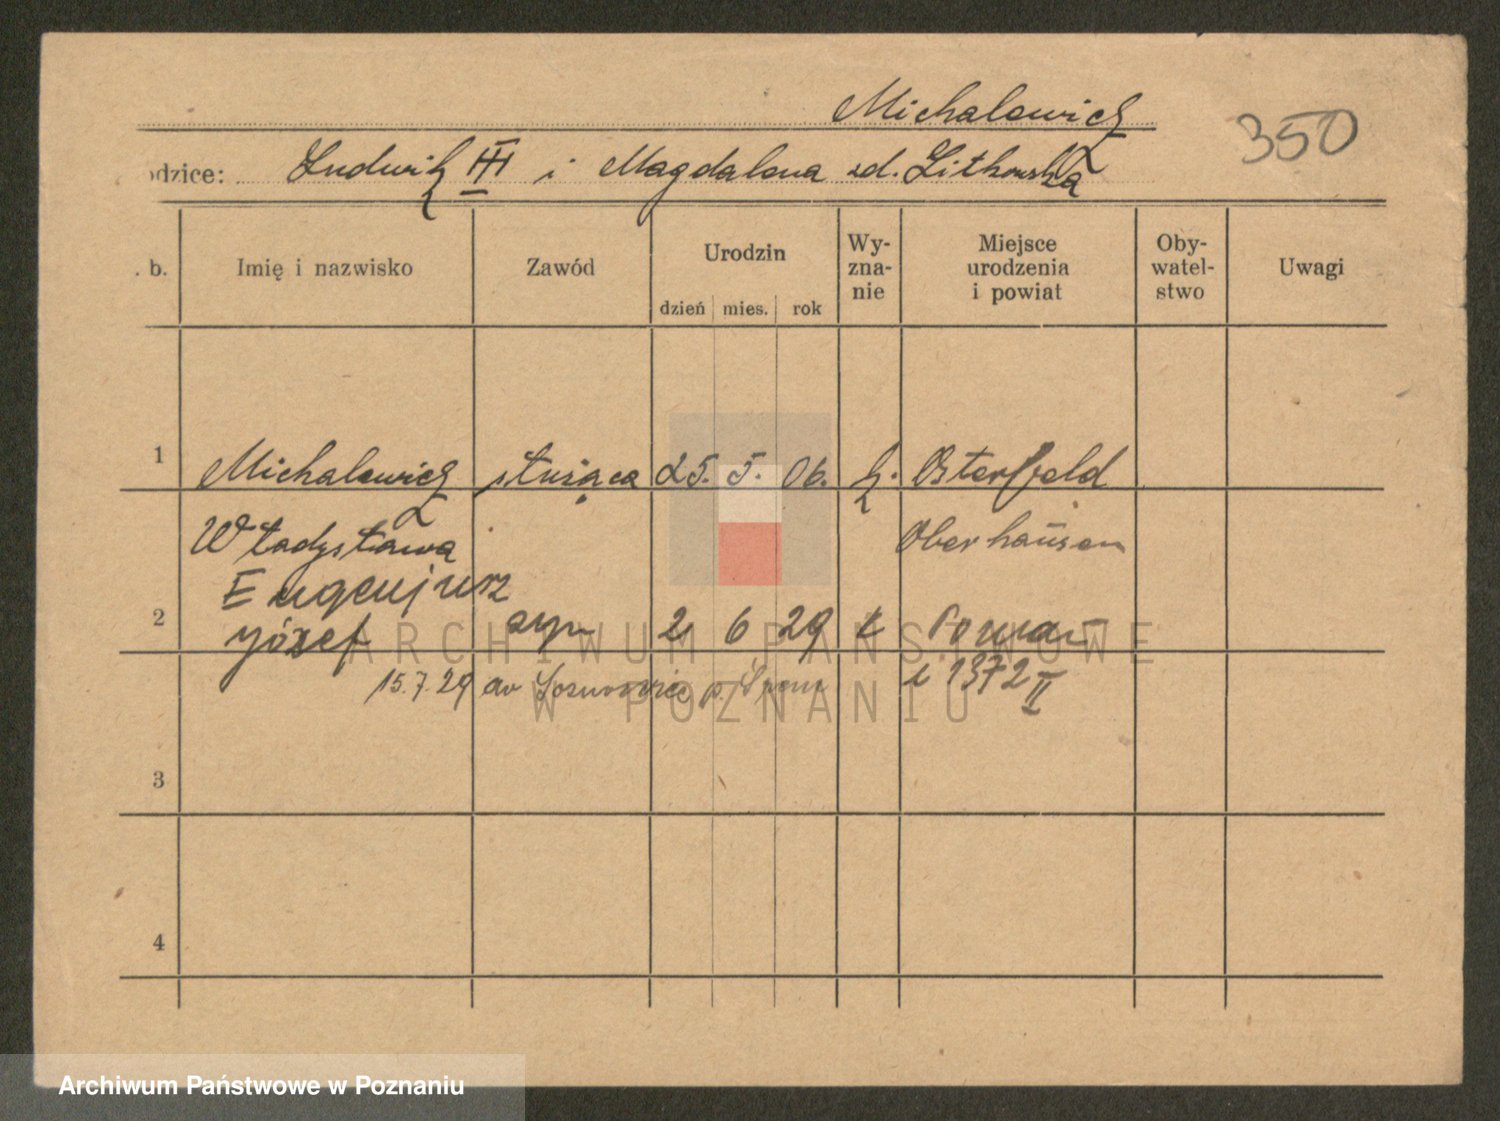 Michalewicz
350
odzice: Ludwik III i Magdalena zd. Litkowska
. b.
Imię i nazwisko
Zawód
Urodzin
dzień mies. rok
Wy-
zna-
nie
Miejsce
urodzenia
i powiat
Oby-
watel-
stwo
Uwagi
1 Michalewicz służąca 25. 5. 06. k. Osterfeld
Władysława Oberhausen
Eugenjusz
2 Józef syn 2 6 29 k Poznań
15.7.29 do p. k 1372 II
3
4
ARCHIWUM PAŃSTWOWE
W POZNANIU
Archiwum Państwowe w Poznaniu